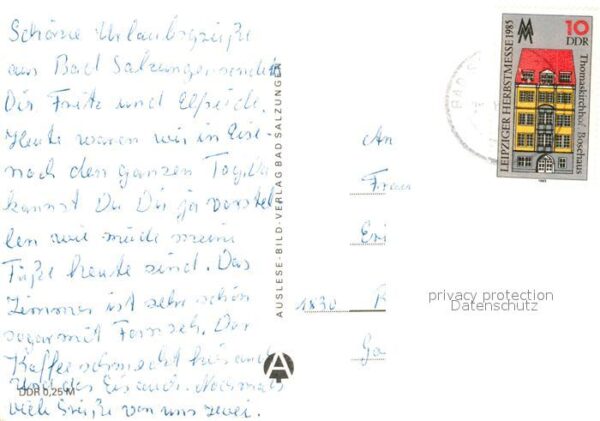 Schöne Urlaubsgrüße
aus Bad Salzungen sendet
Dir Fritz und Elfriede.
Heute waren wir in Eise-
nach den ganzen Tag. Da
kannst Du Dir ja vorstel-
len wie müde meine
Füße heute sind. Das
Zimmer ist sehr schön
sogar mit Fernseh. Der
Kaffee schmeckt hier auch
Und das Eis auch. Nochmals
viele Grüße von uns zwei.
DDR 0,25 M
AUSLESE-BILD-VERLAG BAD SALZUNGEN
An
Frau
Eri
1830 R
Ga
10
DDR
LEIPZIGER HERBSTMESSE 1985
Thomaskirchhof · Bosehaus
1985
BAD
privacy protection
Datenschutz